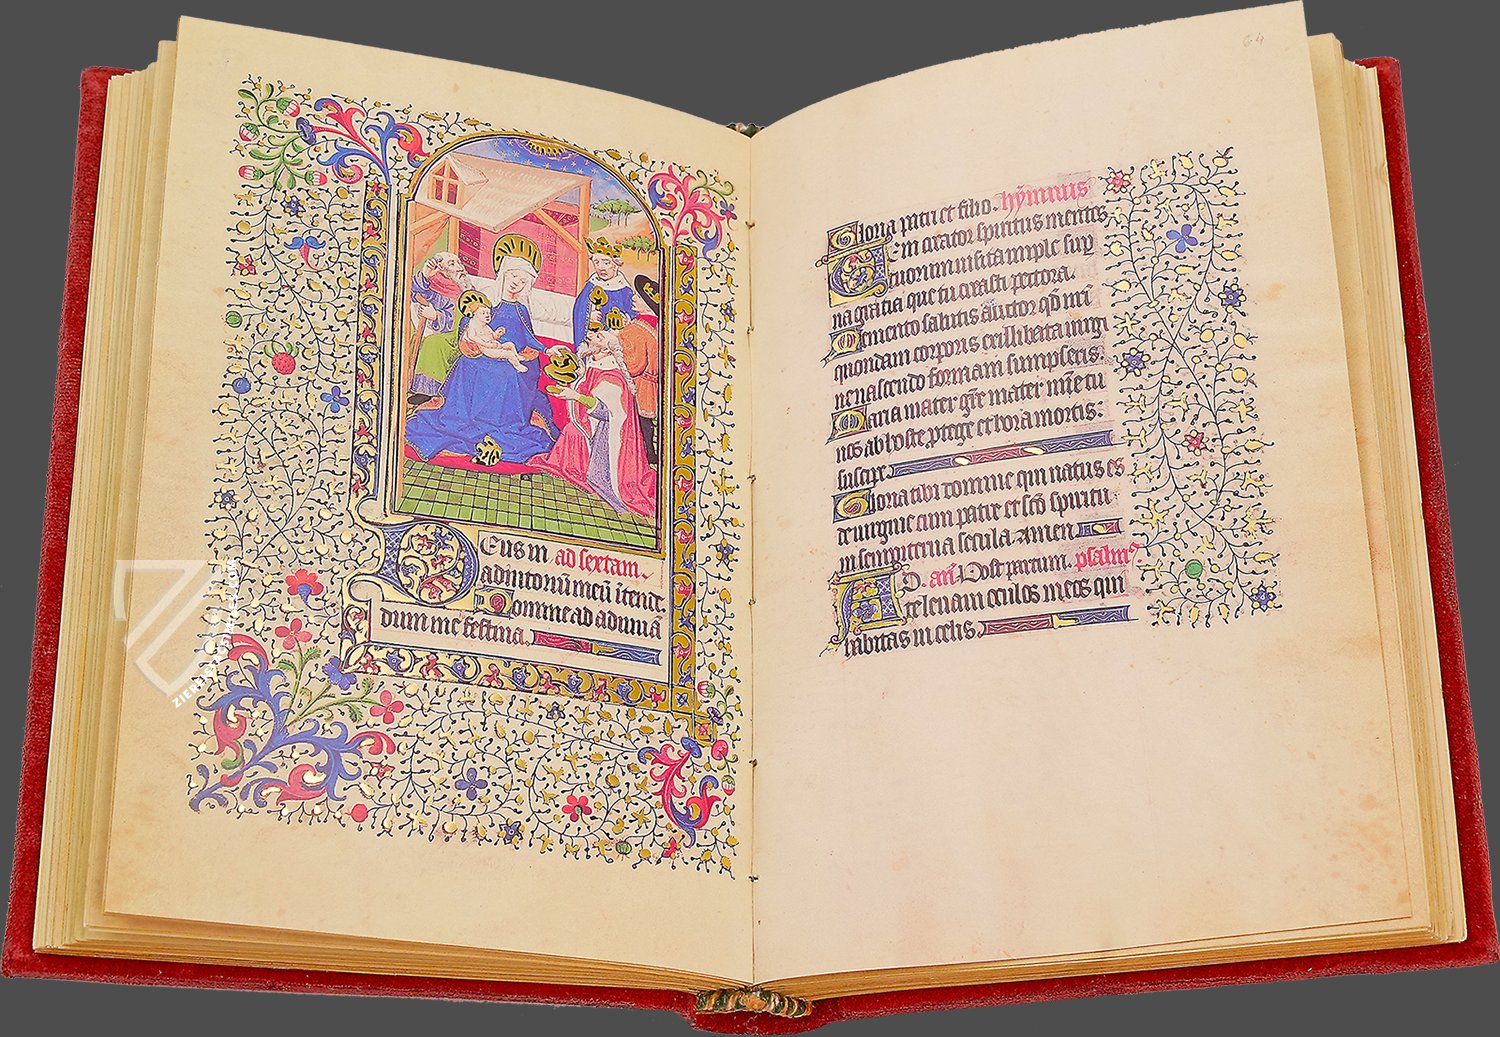 Deus in ad sextam.
adiutoriũ meũ itende.
Domine ad adiuuã
dum me festina.
64
Gloria patri et filio. hỹmnus
Veni creator spiritus mentes
tuorum uisita imple supͥ
na gratia que tu creasti pectora.
Memento salutis auctor qð nr̃i
quondam corporis ex illibata uirgi
ne nascendo formam sumpseris.
Maria mater gr̃e mater mĩe tu
nos ab hoste ptege et hora mortis:
suscipe.
Gloria tibi domine qui natus es
de uirgine cum patre et sc̃o spiritu
in sempiterna secula. Amen
añ Post partum. psalmꝰ
AD te leuam oculos meos qui
habitas in celis.